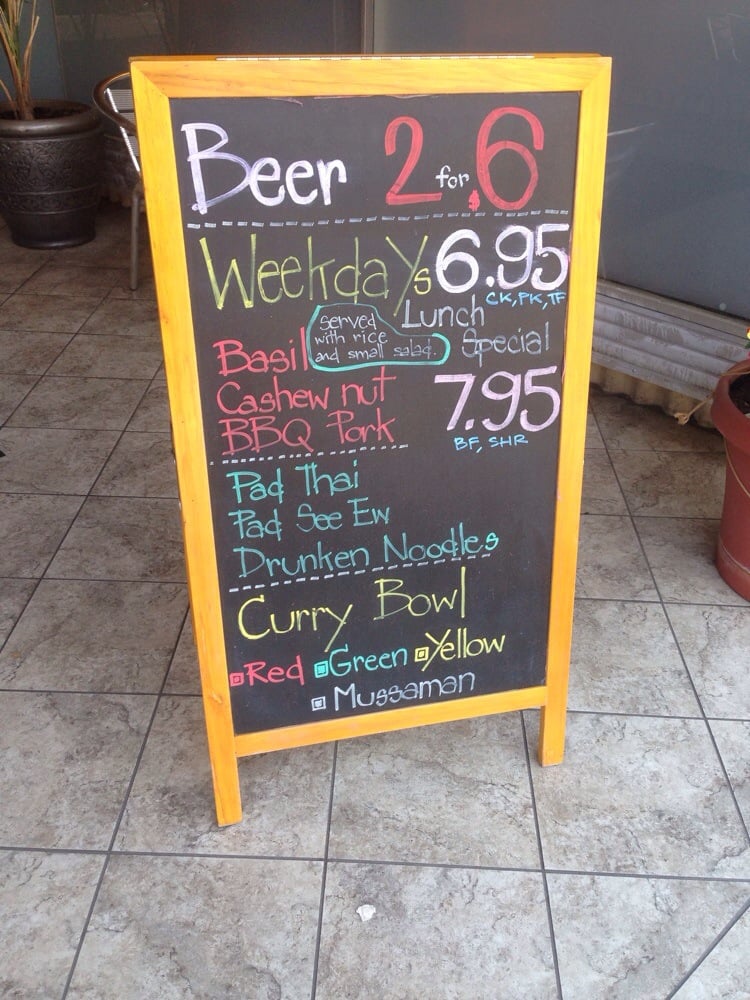 Beer 2 for $6
Weekdays 6.95
CK, PK, TF
Lunch
Special
served
with rice
and small salad.
Basil
Cashew nut
BBQ Pork
7.95
BF, SHR
Pad Thai
Pad See Ew
Drunken Noodles
Curry Bowl
Red Green Yellow
Mussaman